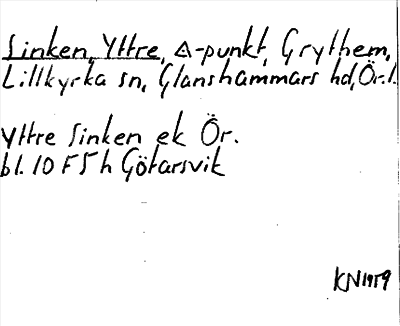 Sinken, Yttre, △-punkt, Grythem,
Lillkyrka sn, Glanshammars hd, Ör. l.
Yttre Sinken ek Ör.
bl. 10 F 5 h Götarsvik
KN 1959